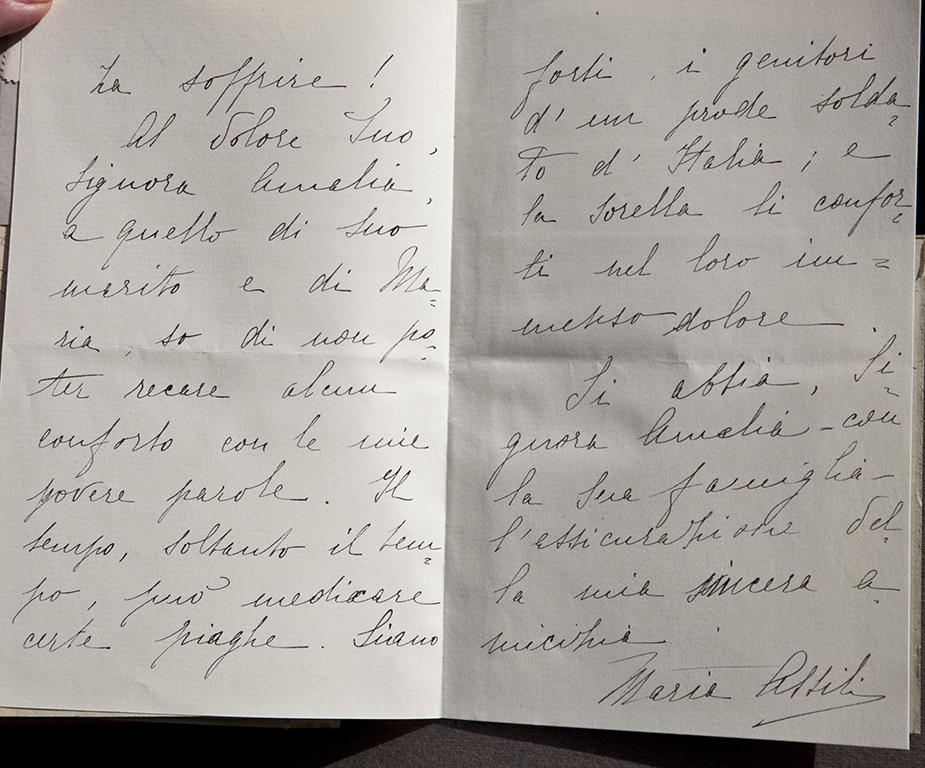 za soffrire!
Al dolore Suo,
Signora Amalia,
a quello di Suo
marito e di Ma=
ria, so di non po=
ter recare alcun
conforto con le mie
povere parole. Il
tempo, soltanto il tem=
po, può medicare
certe piaghe. Siano
forti, i genitori
d'un prode solda=
to d'Italia; e
la sorella li confor=
ti nel loro im=
menso dolore.
Si abbia, Si=
gnora Amalia - con
la Sua famiglia -
l'assicurazione del=
la mia sincera a=
micizia.
Maria